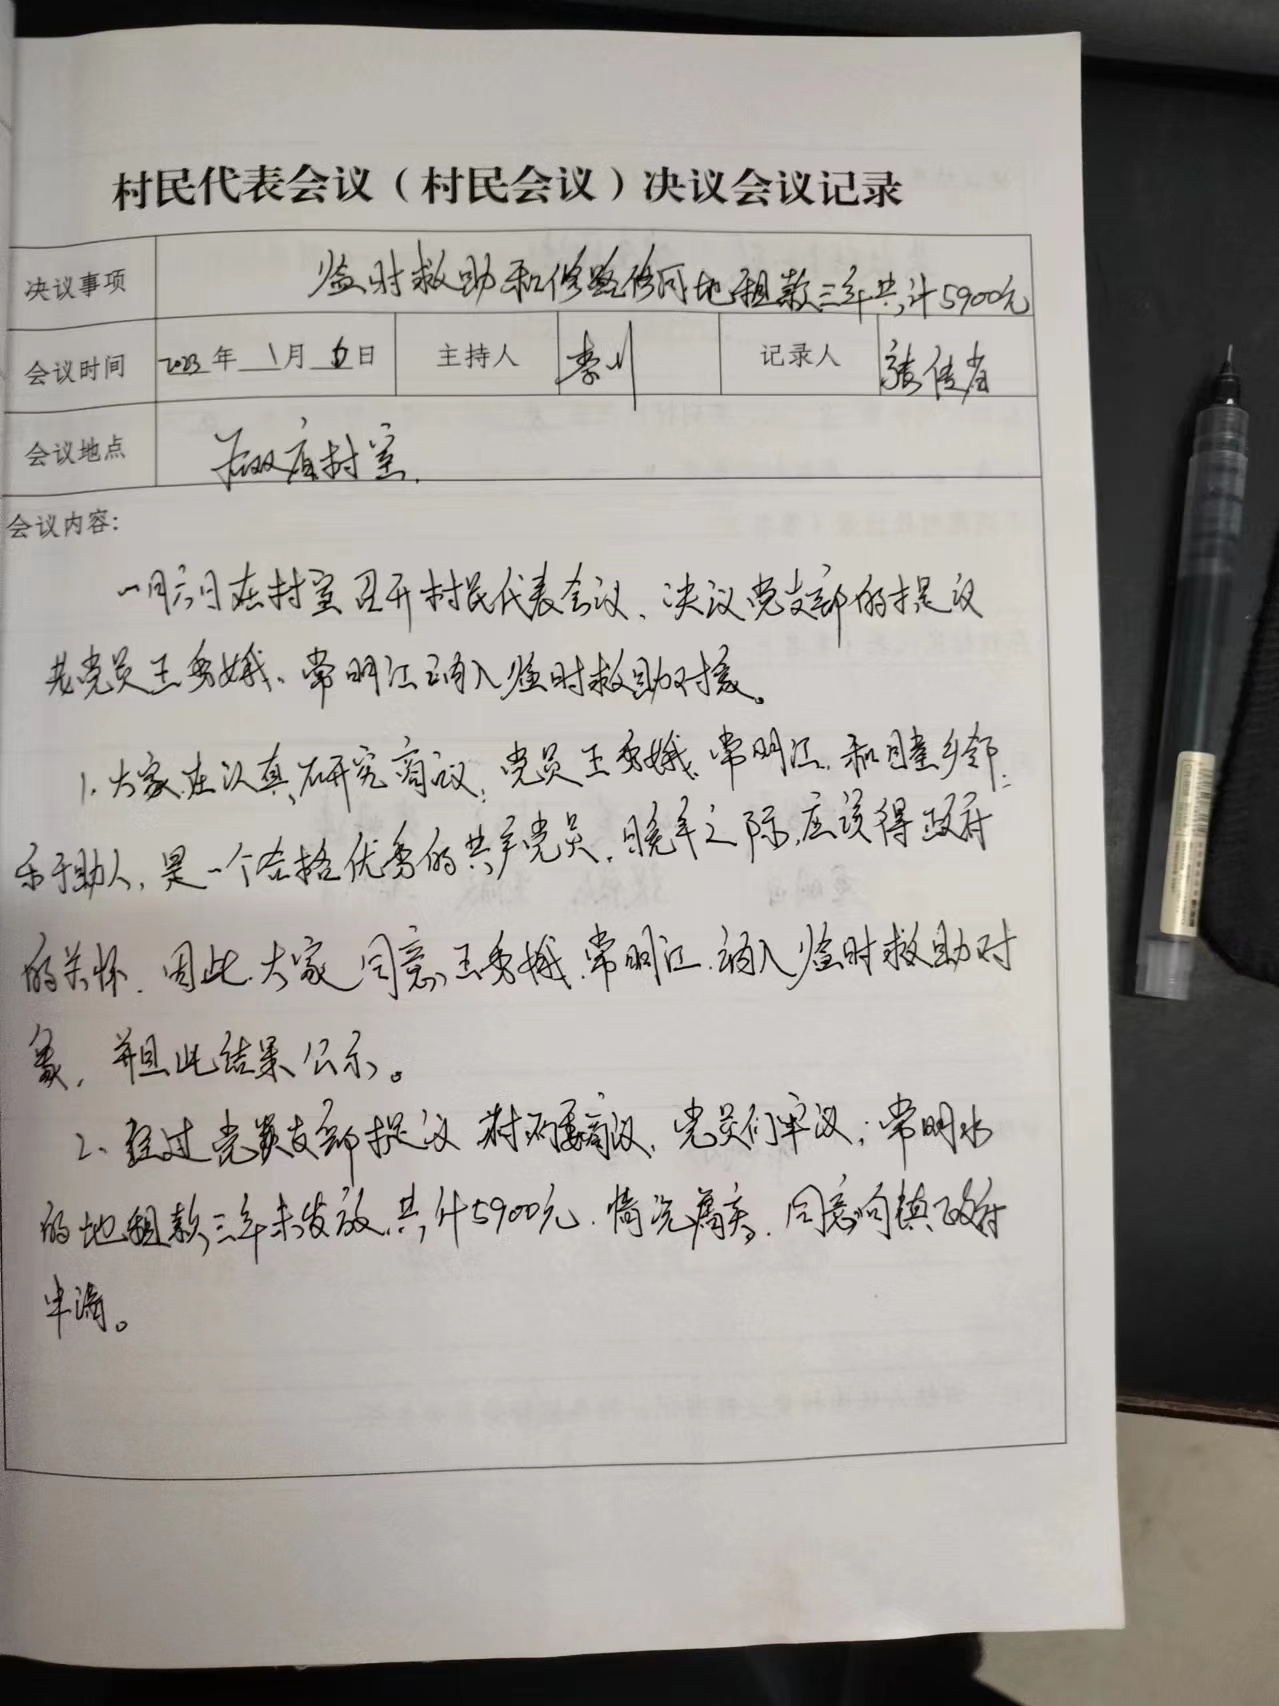 村民代表会议（村民会议）决议会议记录
决议事项 临时救助和修路修河地租款三年共计5900元
会议时间 2023年1月6日 主持人 李川 记录人 张传省
会议地点 后双庙村室.
会议内容：
一月六日在村室召开村民代表会议、决议党支部的提议
老党员王秀娥、常明江纳入临时救助对象。
1、大家在认真研究商议；党员王秀娥、常明江、和睦乡邻；
乐于助人，是一个合格优秀的共产党员，晚年之际，应该得政府
的关怀．因此．大家同意王秀娥．常明江．纳入临时救助对
象，并且此结果公示。
2、经过党员支部提议 村两委商议，党员们审议；常明水
的地租款三年未发放，共计5900元．情况属实．同意向镇政府
申请。